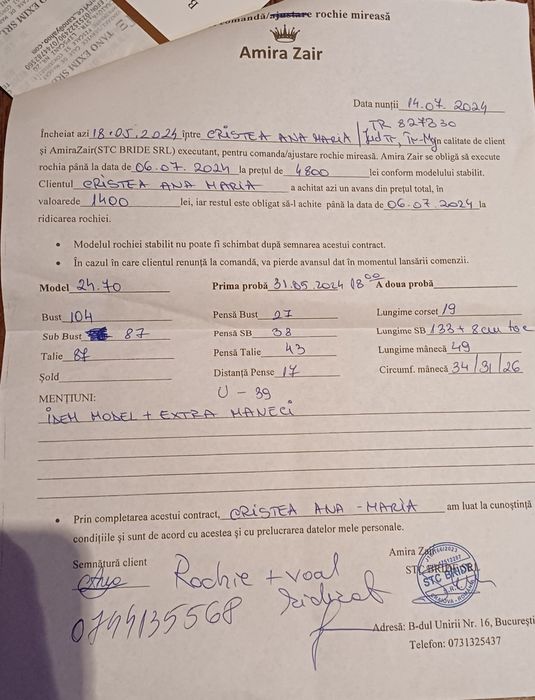 comandă/ajustare rochie mireasă
Amira Zair
Data nunții 14.07.2024
TR 827330
Încheiat azi 18.05.2024 între CRISTEA ANA MARIA / Jud Tr, Tr-Mg în calitate de client
și AmiraZair(STC BRIDE SRL) executant, pentru comanda/ajustare rochie mireasă. Amira Zair se obligă să execute
rochia până la data de 06.07.2024 la prețul de 4800 lei conform modelului stabilit.
Clientul CRISTEA ANA MARIA a achitat azi un avans din prețul total, în
valoarede 1400 lei, iar restul este obligat să-l achite până la data de 06.07.2024 la
ridicarea rochiei.
• Modelul rochiei stabilit nu poate fi schimbat după semnarea acestui contract.
• În cazul în care clientul renunță la comandă, va pierde avansul dat în momentul lansării comenzii.
Model 24.70 Prima probă 31.05.2024 18 00 A doua probă
Bust 104 Pensă Bust 27 Lungime corset 19
Sub Bust 87 Pensă SB 38 Lungime SB 133 + 8cm toc
Talie 87 Pensă Talie 43 Lungime mânecă 49
Șold Distanță Pense 17 Circumf. mânecă 34/31/26
MENȚIUNI: U - 39
IDEM MODEL + EXTRA MANECI
• Prin completarea acestui contract, CRISTEA ANA-MARIA am luat la cunoștință
condițiile și sunt de acord cu acestea și cu prelucrarea datelor mele personale.
Semnătură client Amira Zair
STC BRIDE
STC BRIDE
Rochie + voal
ridicat
0744135568
Adresă: B-dul Unirii Nr. 16, București
Telefon: 0731325437